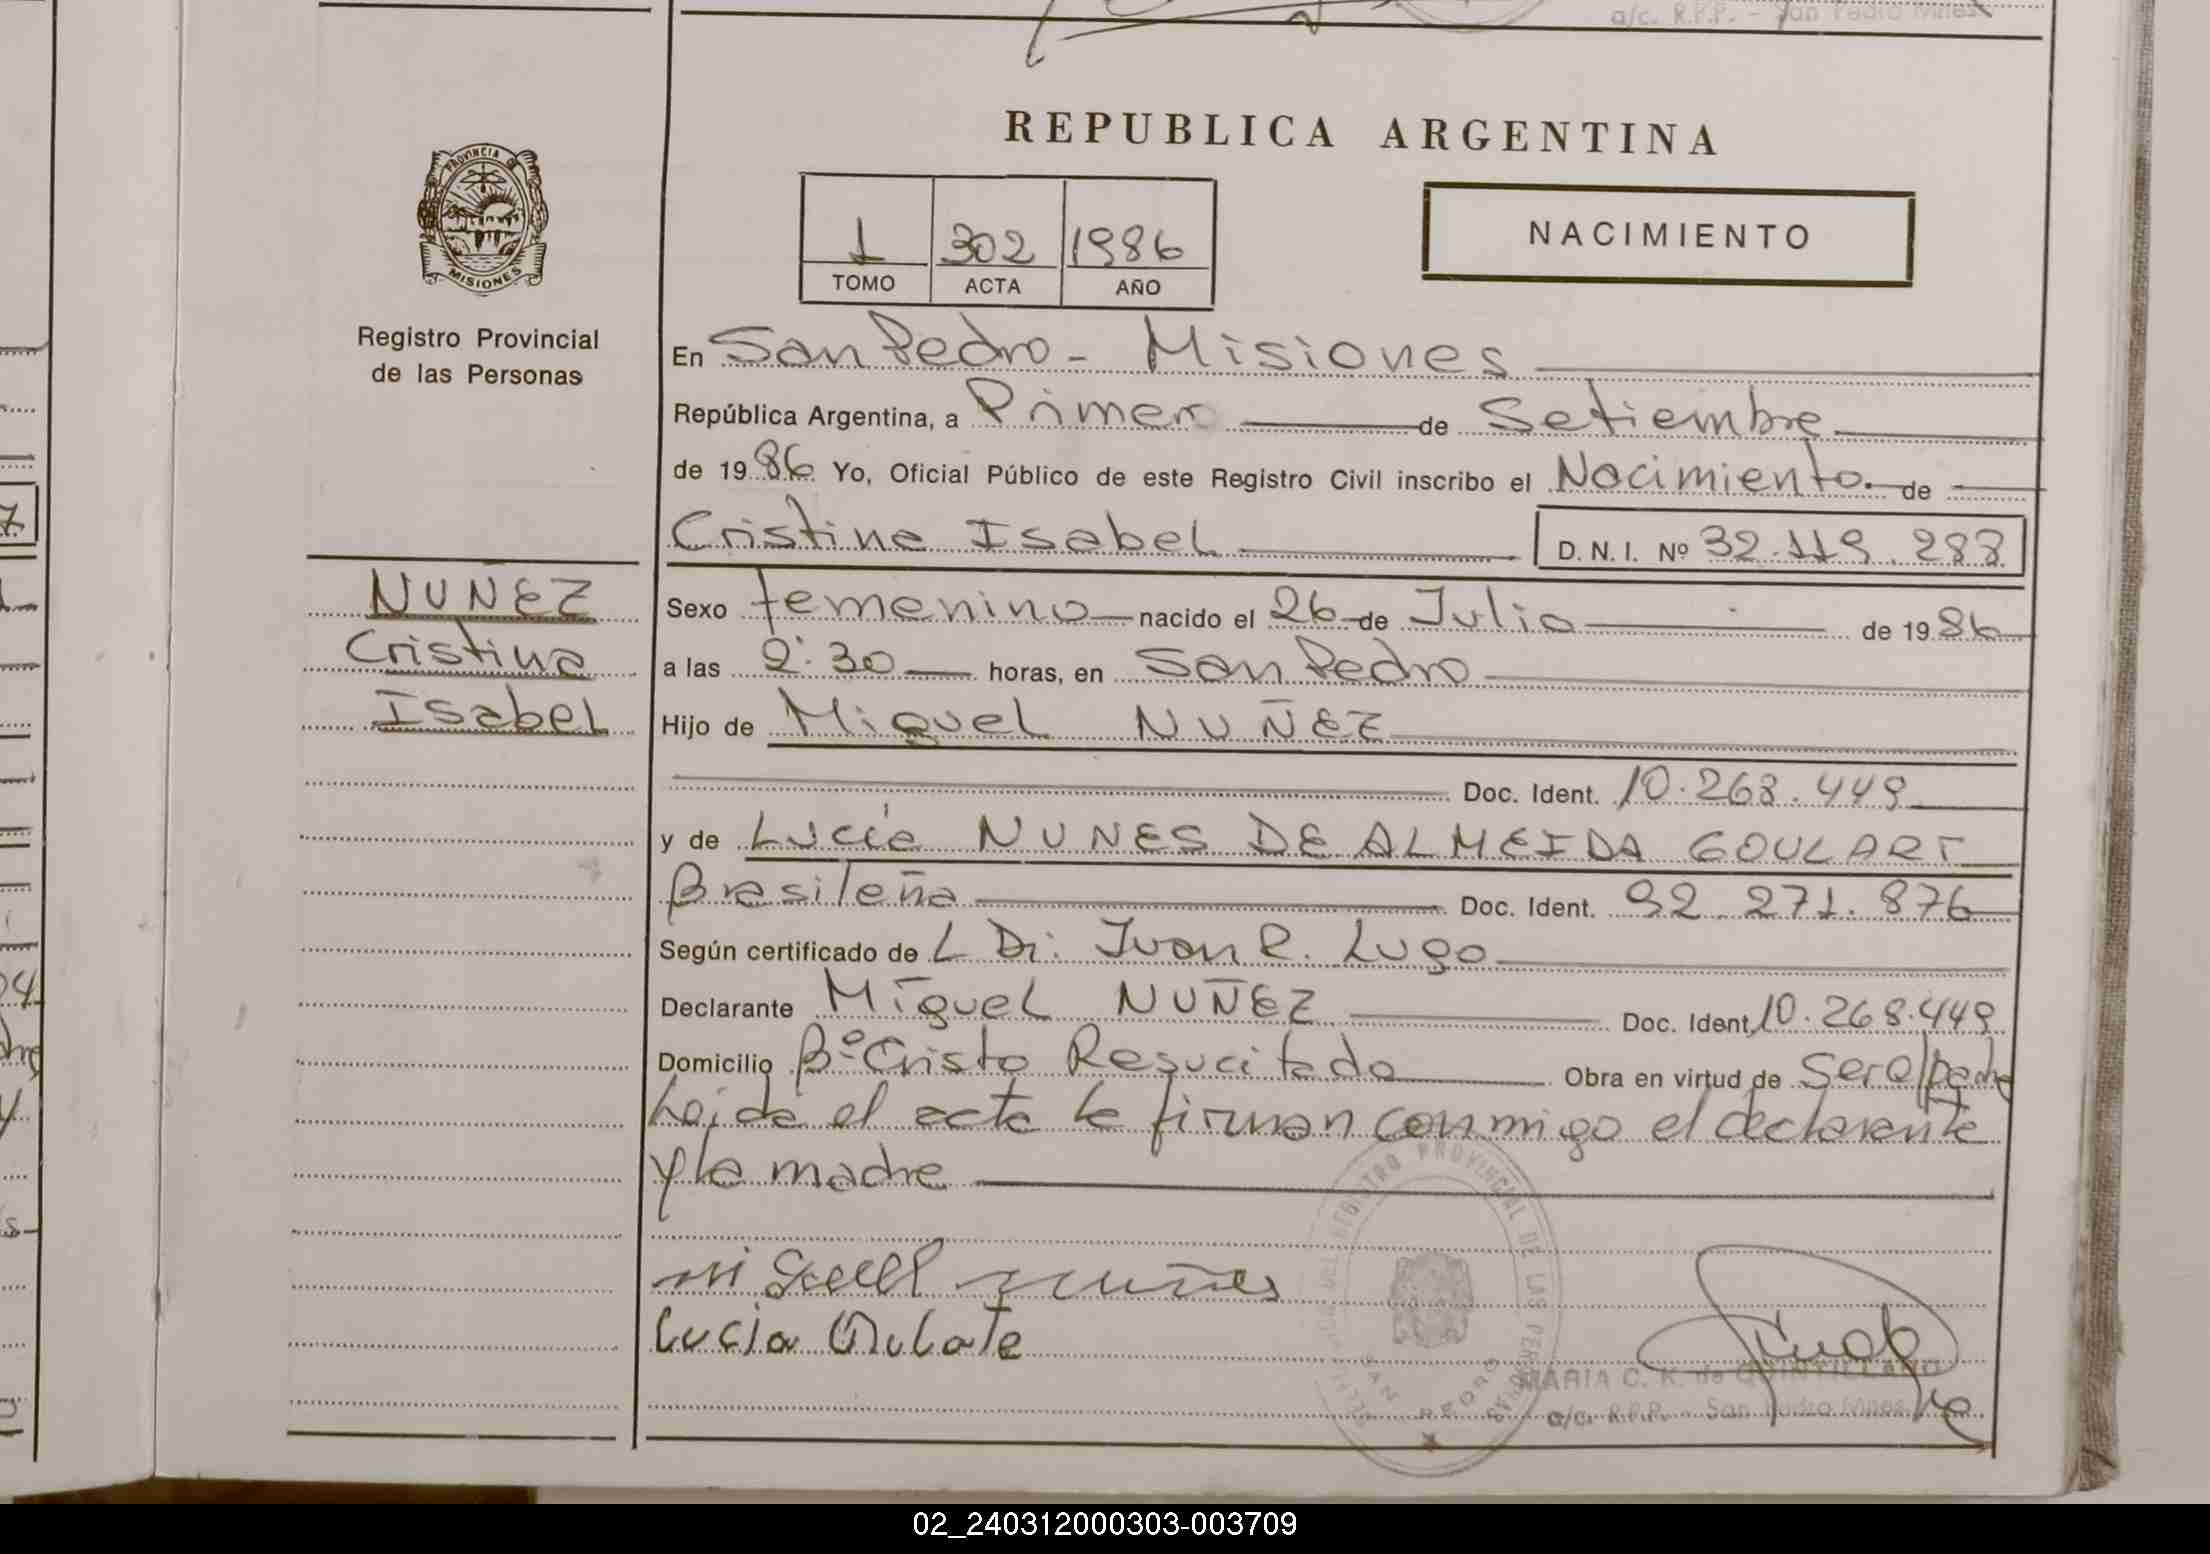 a/c. R.P.P. - San Pedro Mnes
PROVINCIA DE
MISIONES
Registro Provincial
de las Personas
REPUBLICA ARGENTINA
1 302 1986
TOMO ACTA AÑO
NACIMIENTO
En San Pedro - Misiones
República Argentina, a Primero de Setiembre
de 1986 Yo, Oficial Público de este Registro Civil inscribo el Nacimiento de
Cristina Isabel D. N. I. Nº 32.119.288
NUÑEZ
Cristina
Isabel
Sexo femenino nacido el 26 de Julio de 1986
a las 2:30 horas, en San Pedro
Hijo de Miguel NUÑEZ
Doc. Ident. 10.268.449
y de Lucía NUNES DE ALMEIDA GOULART
Brasileña Doc. Ident. 92.271.876
Según certificado de L Dr: Juan R. Lugo
Declarante Miguel NUÑEZ Doc. Ident. 10.268.449
Domicilio Bº Cristo Resucitado Obra en virtud de Ser el padre
Leída el acta la firman conmigo el declarante
y la madre
REGISTRO PROVINCIAL DE LAS PERSONAS
SAN PEDRO
Lucia
MARIA C. K. de QUINTILLANO
a/c. R.P.P. - San Pedro Mnes
02_240312000303-003709